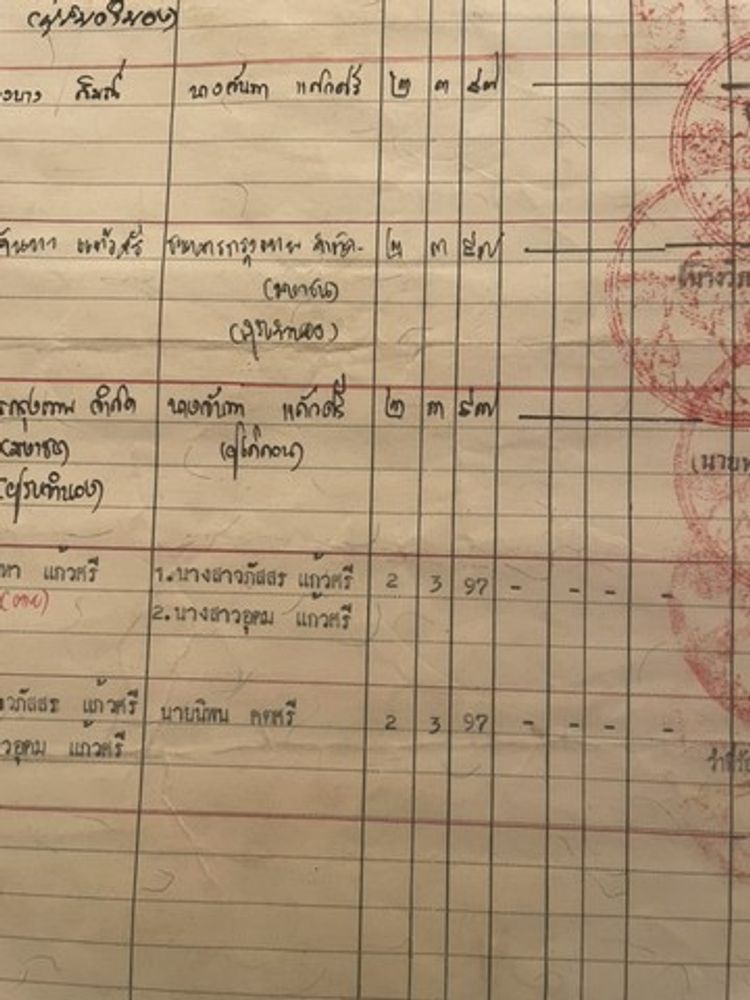 (ผู้รับจำนอง)
นางจันทา แก้วศรี ๒ ๓ ๕๗
แก้วศรี ธนาคารกรุงเทพ จำกัด ๒ ๓ ๕๗
(มหาชน)
(ผู้รับจำนอง)
กรุงเทพ จำกัด นางจันทา แก้วศรี ๒ ๓ ๕๗
(มหาชน) (ผู้ไถ่ถอน)
(ผู้รับจำนอง)
ทา แก้วศรี 1.นางสาวภัสสร แก้วศรี 2 3 97 - - - -
(ตาย) 2.นางสาวอุดม แก้วศรี
วภัสสร แก้วศรี นายนิพน คตศรี 2 3 97 - - - -
วอุดม แก้วศรี
(นาย